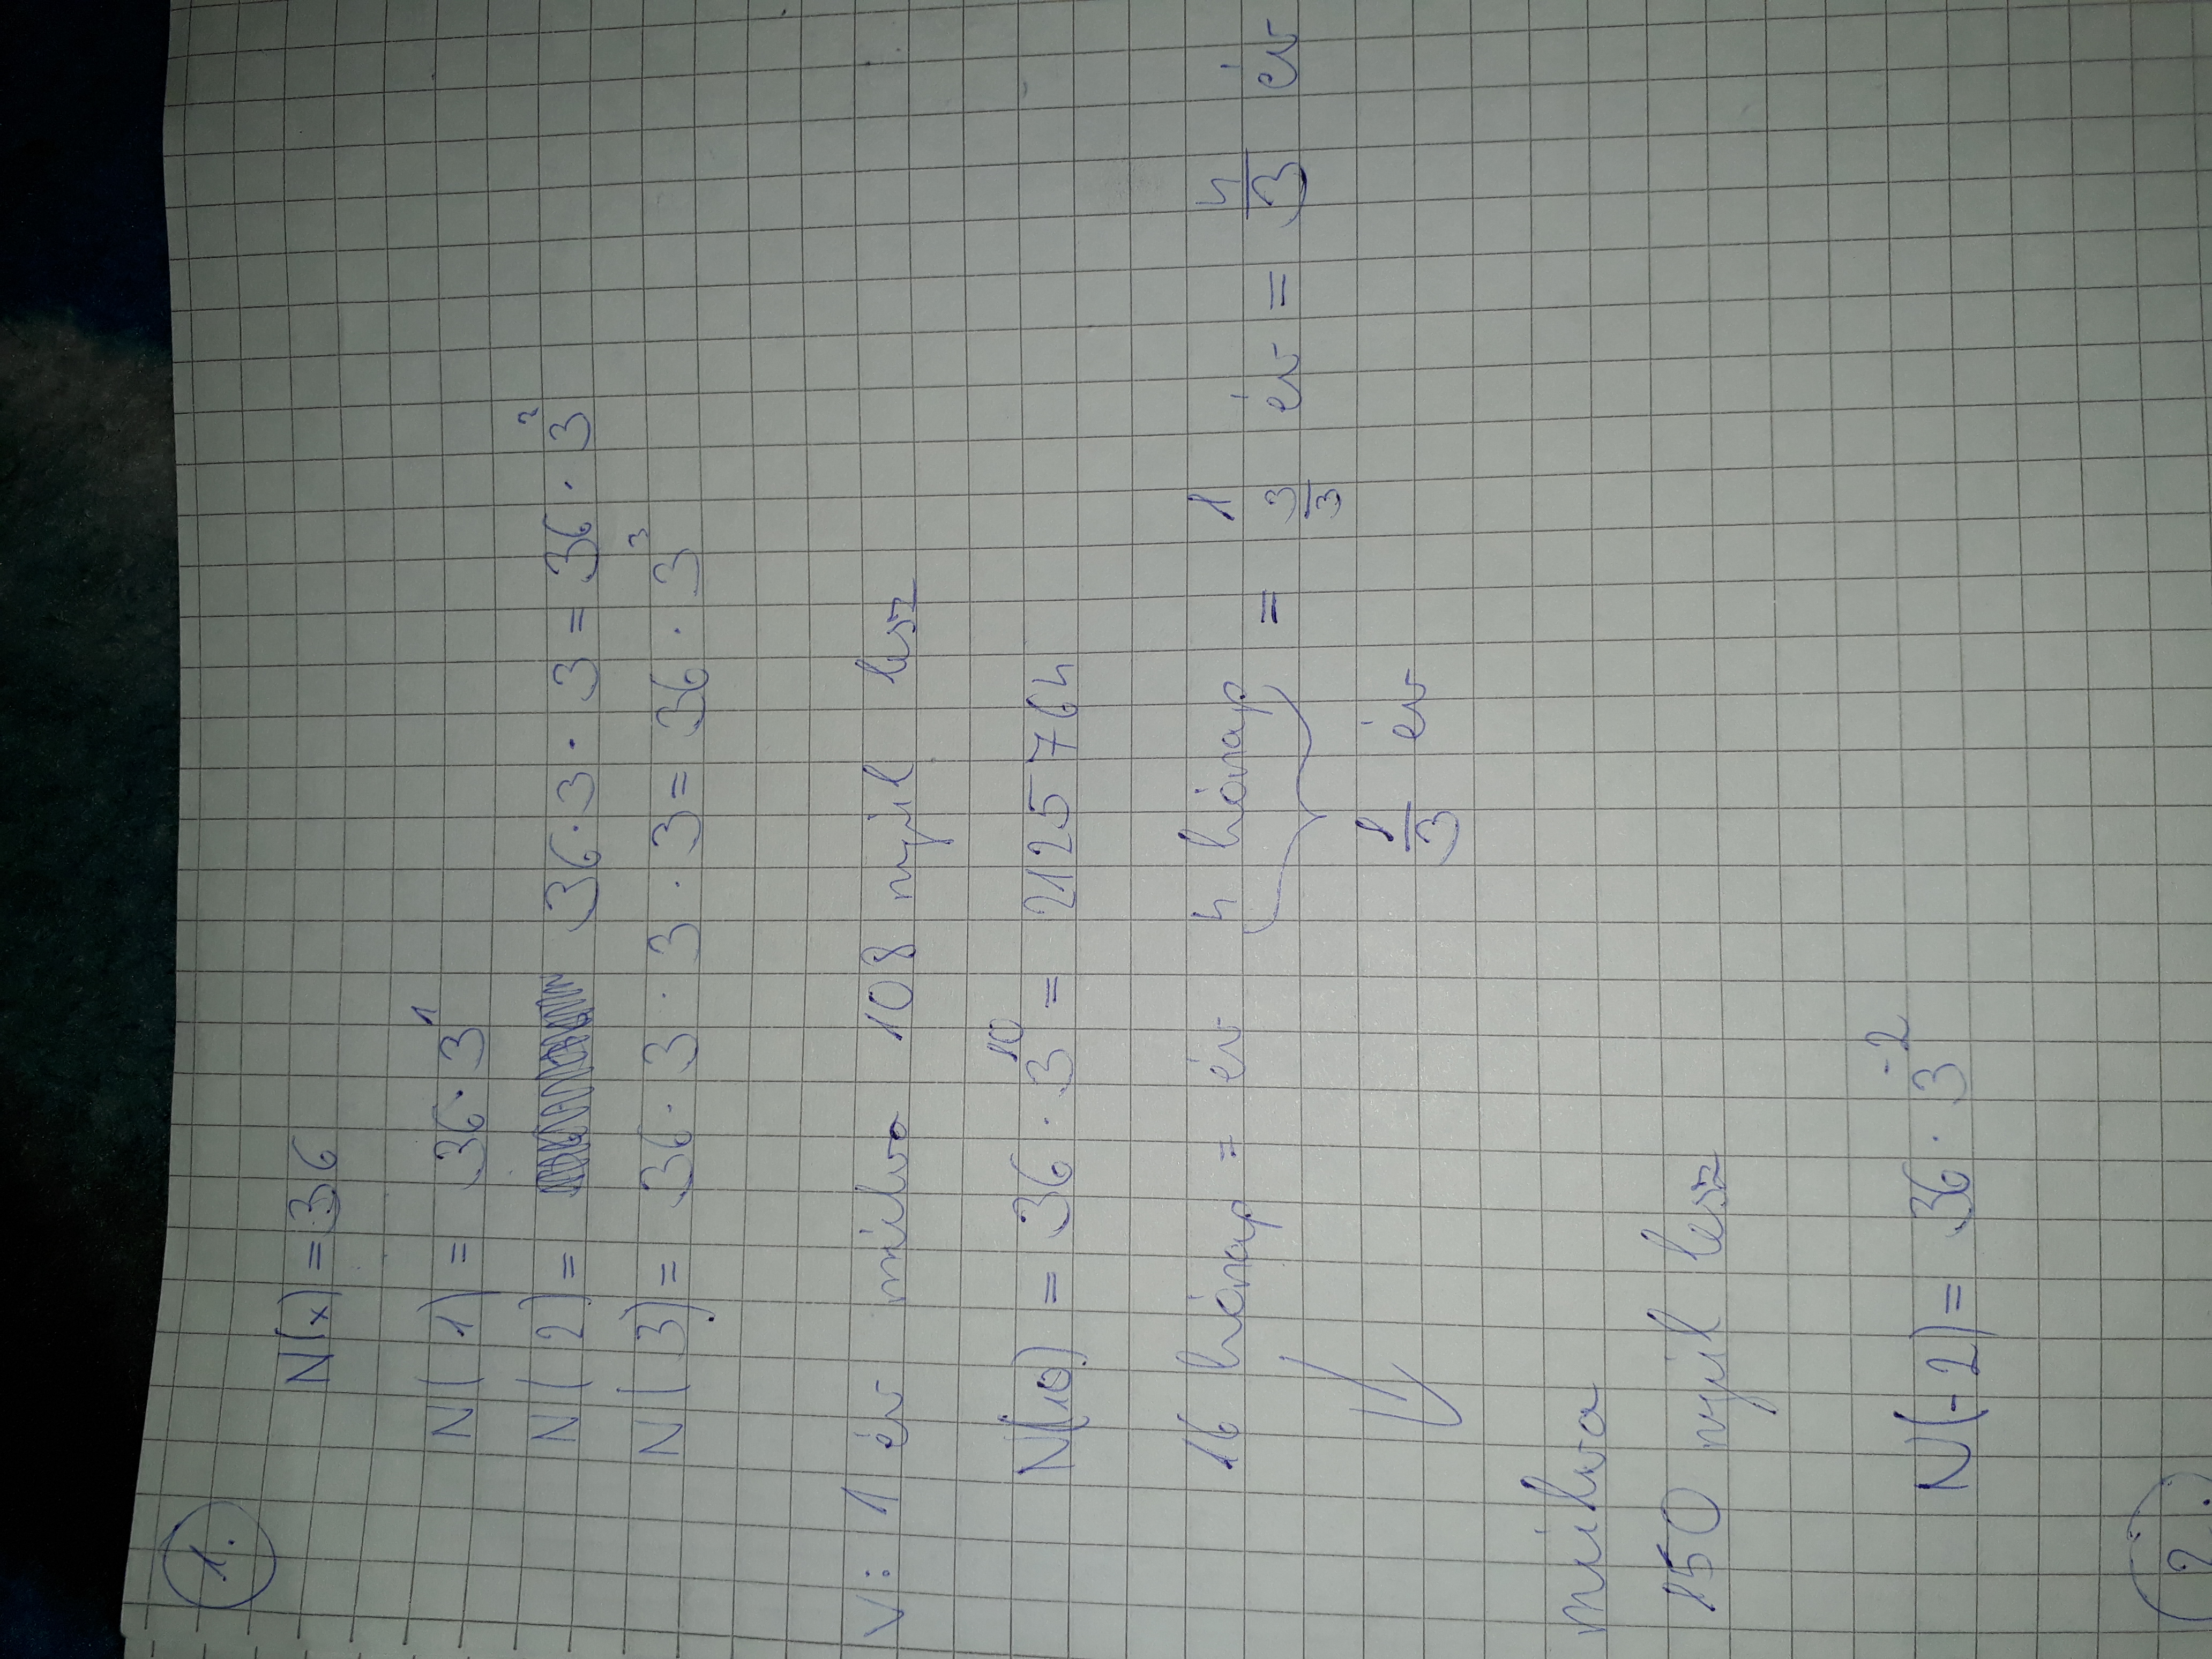 1.
N(x) = 36
N(1) = 36 · 3¹
N(2) = 36 · 3 · 3 = 36 · 3²
N(3) = 36 · 3 · 3 · 3 = 36 · 3³
V: 1 év múlva 108 nyúl lesz
N(10) = 36 · 3¹⁰ = 2125764
16 hónap = év 4 hónap = 1 3/3 év = 4/3 év
1/3 év
múlva
150 nyúl lesz
N(-2) = 36 · 3⁻²
2.